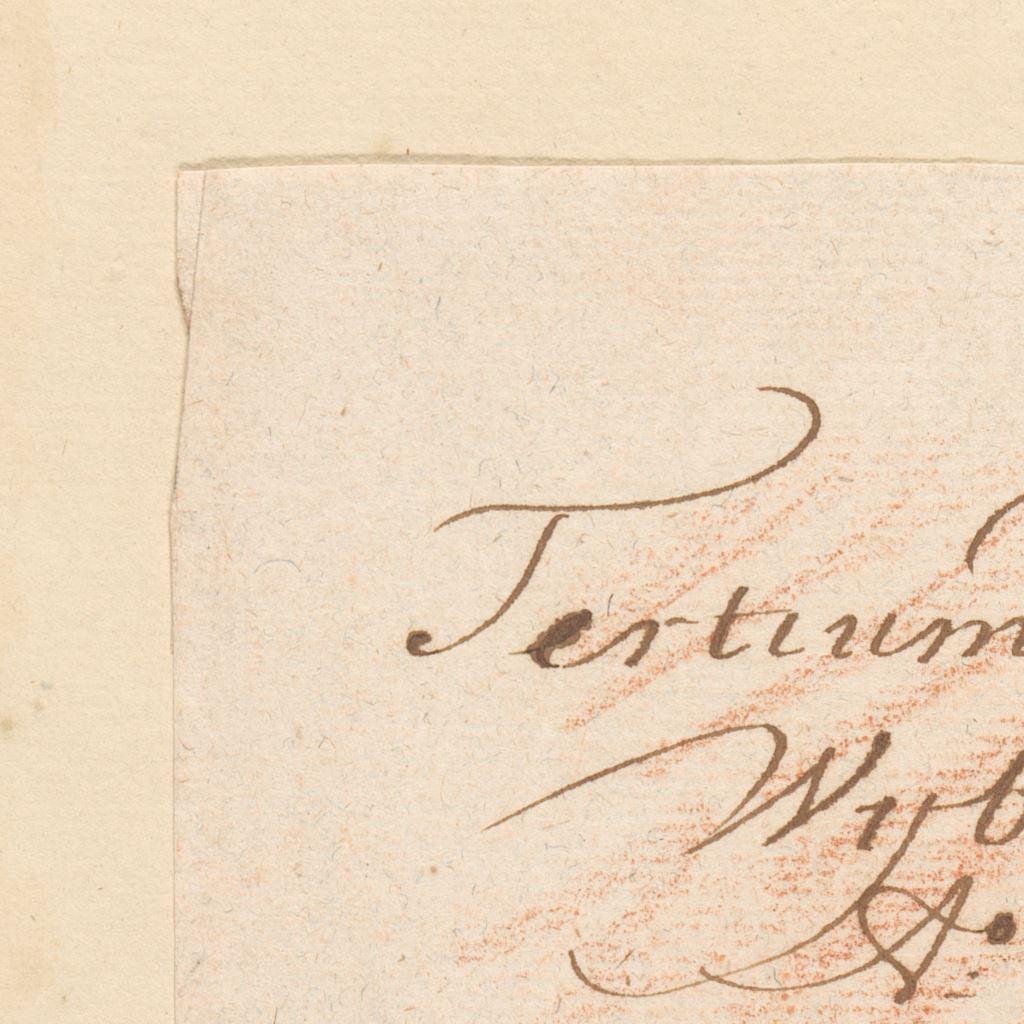 Tertium
Wyb
A: